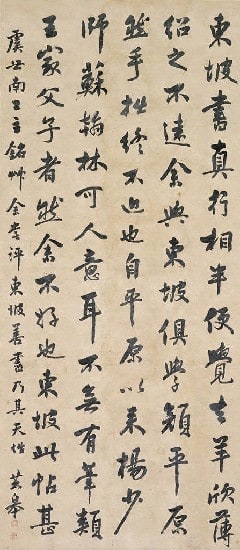 東坡書真行相半便覺去羊欣薄
紹之不遠余與東坡俱學顏平原
然手拙終不近也自平原以來楊少
師蘇翰林可人意耳不無有筆類
王家父子者然余不好也東坡此帖甚
虞世南公主銘艸余嘗評東坡善書乃其天性 芸皋